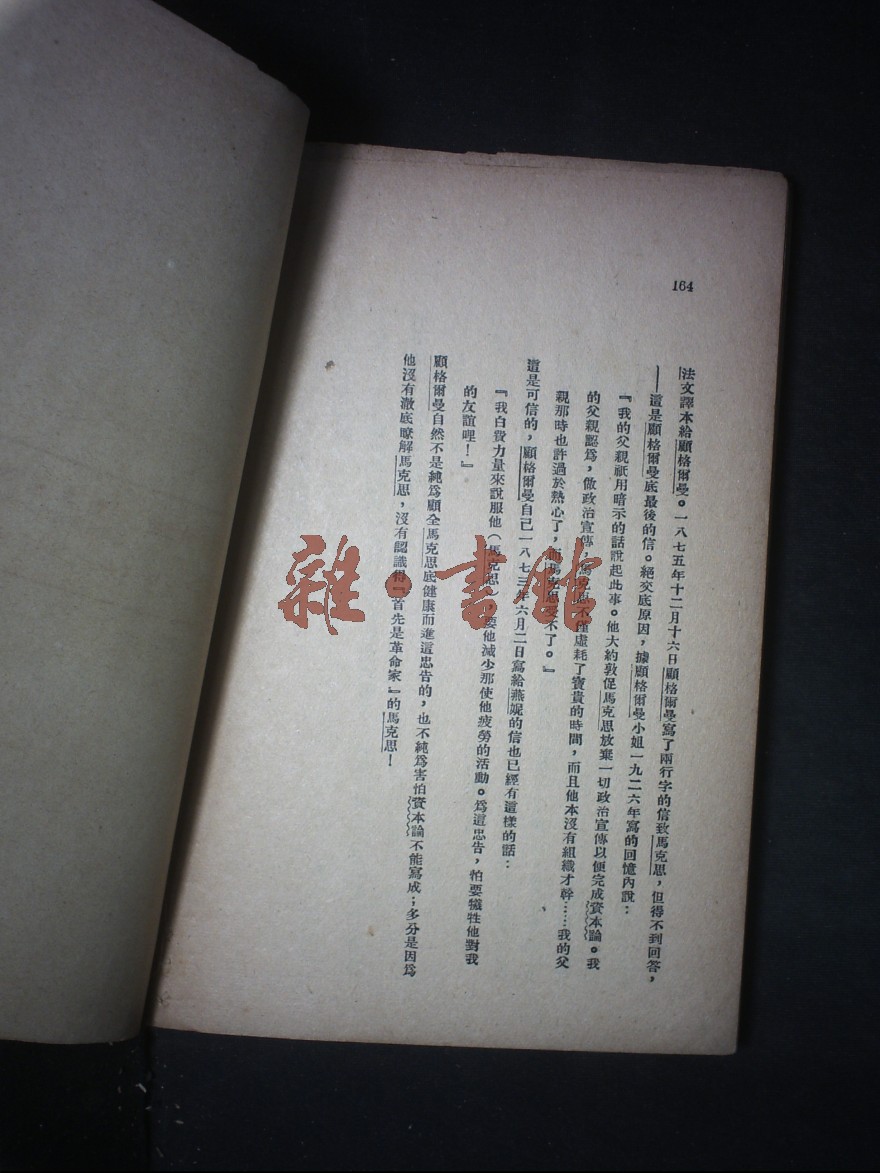 164
法文譯本給顧格爾曼。一八七五年十二月十六日顧格爾曼寫了兩行字的信致馬克思，但得不到回答，
——這是顧格爾曼底最後的信。絕交底原因，據顧格爾曼小姐一九二六年寫的回憶內說：
『我的父親祇用暗示的話說起此事。他大約敦促馬克思放棄一切政治宣傳以便完成資本論。我
的父親認爲，做政治宣傳，馬克思不僅虛耗了寶貴的時間，而且他本沒有組織才幹……我的父
親那時也許過於熱心了，而馬克思受不了。』
這是可信的，顧格爾曼自己一八七三年六月二日寫給燕妮的信也已經有這樣的話：
『我白費力量來說服他（馬克思），要他減少那使他疲勞的活動。爲這忠告，怕要犧牲他對我
的友誼哩！』
顧格爾曼自然不是純爲顧全馬克思底健康而進這忠告的，也不純爲害怕資本論不能寫成；多分是因爲
他沒有澈底瞭解馬克思，沒有認識得『首先是革命家』的馬克思！
雜·書館